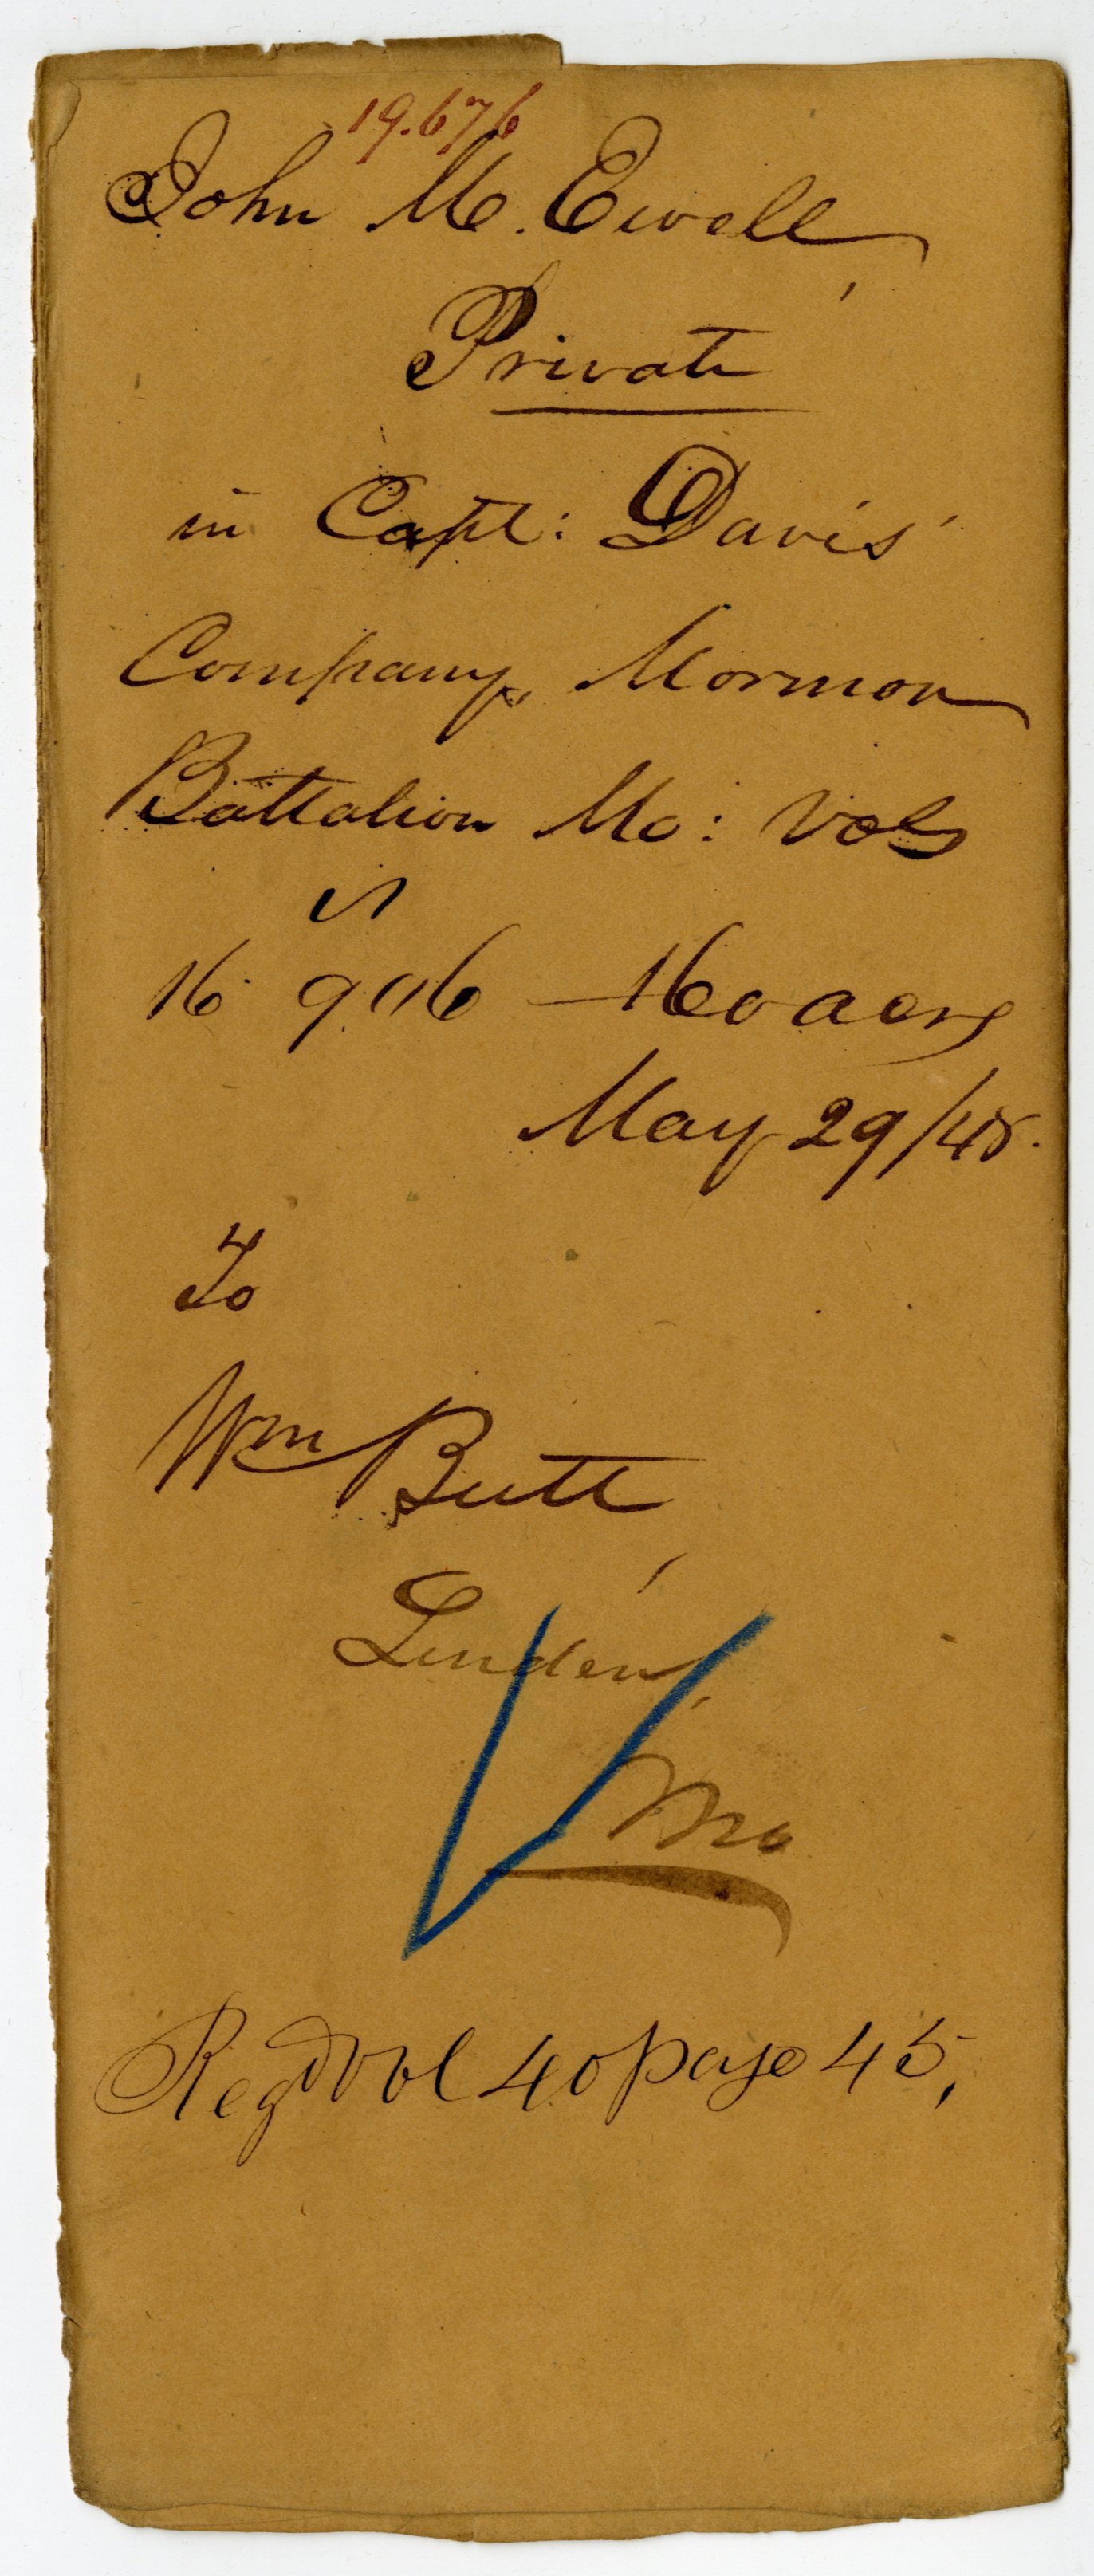 19.676
John M. Ewell,
Private
in Capt: Davis'
Company, Mormon
Battalion Mo: Vols
16 906 – 160 acres
May 29/48.
To
Wm Butt,
Linden,
Mo
Regd Vol 40 page 45,